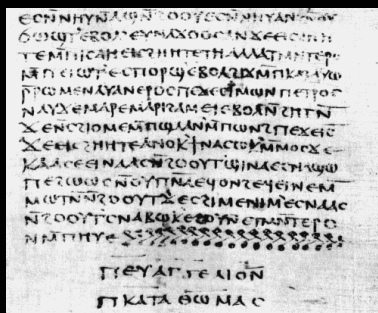 ⲉⲥⲛ̄ⲛⲏⲩ ⲛ̄ⲁϣ ⲛ̄ϩⲟⲟⲩ ⲉⲥⲛ̄ⲛⲏⲩ ⲁⲛ ϩⲛ ⲟⲩ
ϭⲱϣⲧ ⲉⲃⲟⲗ ⲉⲩⲛⲁϫⲟⲟⲥ ⲁⲛ ϫⲉ ⲉⲓⲥϩⲏⲏ
ⲧⲉ ⲙ̄ⲡⲓⲥⲁ ⲏ ⲉⲓⲥϩⲏⲏⲧⲉ ⲧⲏ ⲁⲗⲗⲁ ⲧⲙⲛ̄ⲧⲉⲣⲟ
ⲙ̄ⲡⲉⲓⲱⲧ ⲉⲥⲡⲟⲣϣ ⲉⲃⲟⲗ ϩⲓϫⲙ̄ ⲡⲕⲁϩ ⲁⲩⲱ
ⲣ̄ⲣⲱⲙⲉ ⲛⲁⲩ ⲁⲛ ⲉⲣⲟⲥ ⲡⲉϫⲉ ⲥⲓⲙⲱⲛ ⲡⲉⲧⲣⲟⲥ
ⲛⲁⲩ ϫⲉ ⲙⲁⲣⲉ ⲙⲁⲣⲓϩⲁⲙ ⲉⲓ ⲉⲃⲟⲗ ⲛ̄ϩⲏⲧⲛ̄
ϫⲉ ⲛ̄ⲥϩⲓⲟⲙⲉ ⲙ̄ⲡϣⲁ ⲁⲛ ⲙ̄ⲡⲱⲛϩ ⲡⲉϫⲉ ⲓ̄ⲥ̄
ϫⲉ ⲉⲓⲥϩⲏⲏⲧⲉ ⲁⲛⲟⲕ ϯⲛⲁⲥⲱⲕ ⲙ̄ⲙⲟⲥ ϫⲉ
ⲕⲁⲁⲥ ⲉⲉⲓⲛⲁⲁⲥ ⲛ̄ϩⲟⲟⲩⲧ ϣⲓⲛⲁ ⲉⲥⲛⲁϣⲱ
ⲡⲉ ϩⲱⲱⲥ ⲛ̄ⲟⲩⲡ̄ⲛ̄ⲁ̄ ⲉϥⲟⲛϩ ⲉϥⲉⲓⲛⲉ ⲙ̄
ⲙⲱⲧⲛ̄ ⲛ̄ϩⲟⲟⲩⲧ ϫⲉ ⲥϩⲓⲙⲉ ⲛⲓⲙ ⲉⲥⲛⲁⲁⲥ
ⲛ̄ϩⲟⲟⲩⲧ ⲥⲛⲁⲃⲱⲕ ⲉϩⲟⲩⲛ ⲉⲧⲙⲛ̄ⲧⲉⲣⲟ
ⲛⲙ̄ⲡⲏⲩⲉ
ⲡⲉⲩⲁⲅⲅⲉⲗⲓⲟⲛ
ⲡⲕⲁⲧⲁ ⲑⲱⲙⲁⲥ